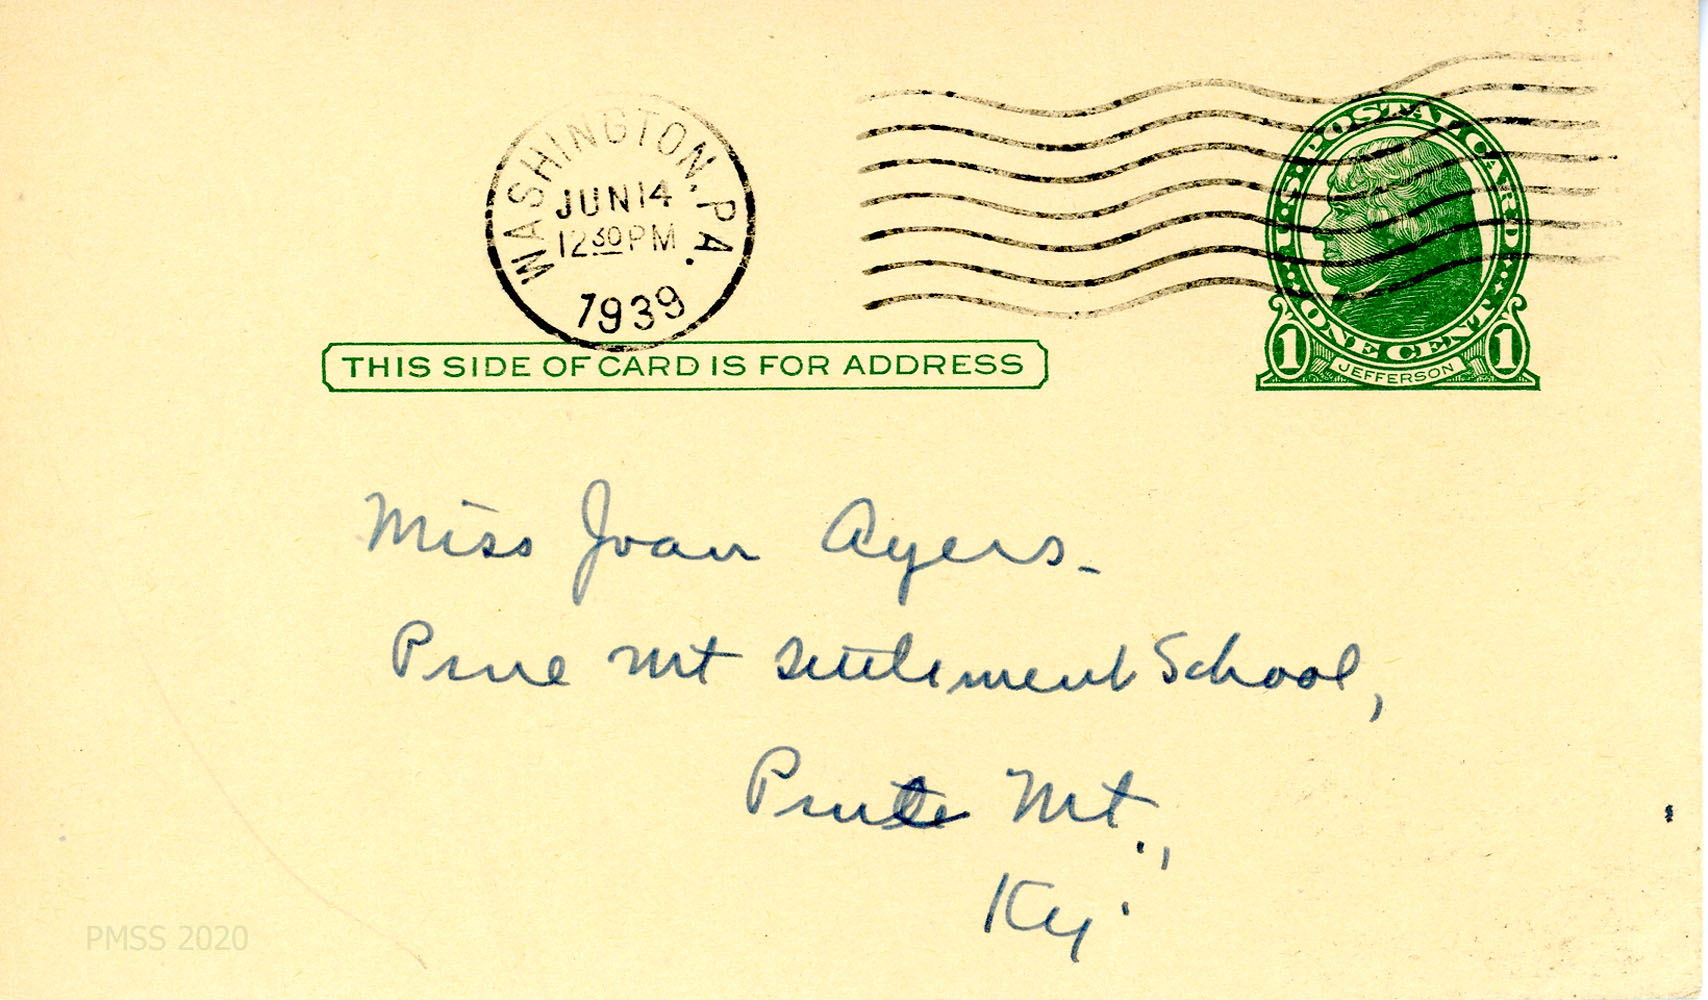 WASHINGTON, PA.
JUN 14
12 30 PM
1939
U.S. POSTAL CARD
ONE CENT
1 JEFFERSON 1
THIS SIDE OF CARD IS FOR ADDRESS
Miss Joan Ayers -
Pine Mt Settlement School,
Pine Mt.,
Ky.
PMSS 2020